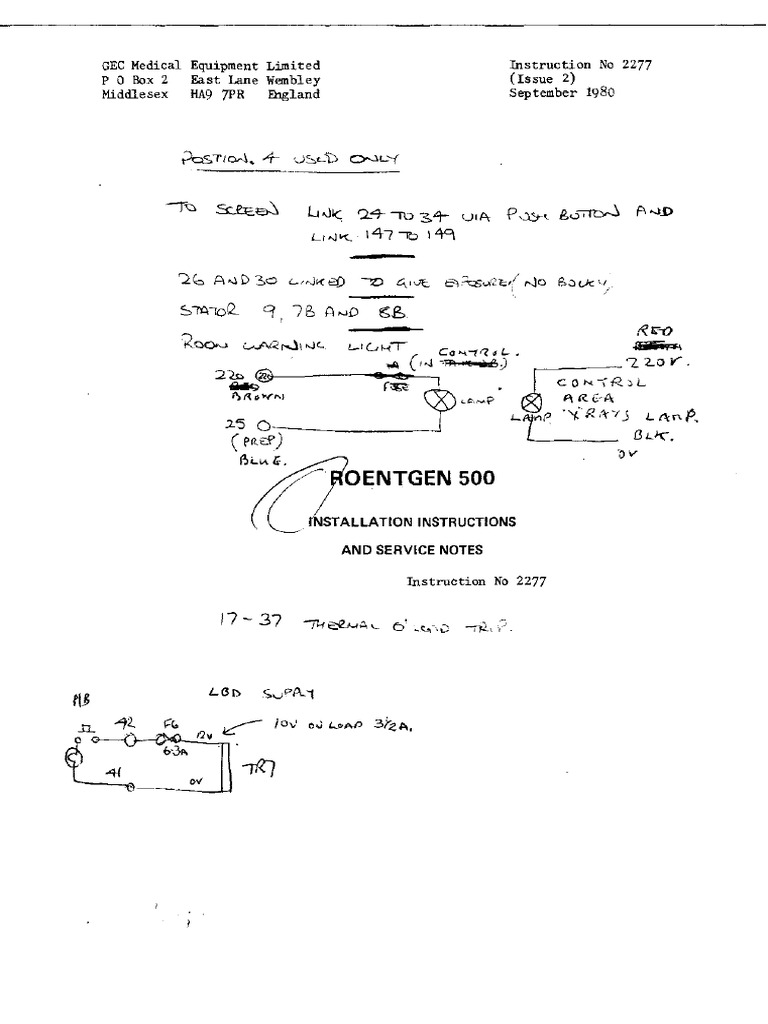 GEC Medical Equipment Limited
P O Box 2 East Lane Wembley
Middlesex HA9 7PR England
Instruction No 2277
(Issue 2)
September 1980
POSTION. 4 USED ONLY
TO SCREEN LINK 24 TO 34 VIA PUSH BUTTON AND
LINK 147 TO 149
26 AND 30 LINKED TO GIVE EXPOSURE (NO BUCKY)
STATOR 9, 7B AND 8B
ROOM WARNING LIGHT
220
BROWN
(IN CONTROL.)
FUSE
LAMP
25
(PREP)
BLUE.
RED
220V.
CONTROL
AREA
LAMP XRAYS LAMP.
BLK.
0V
ROENTGEN 500
INSTALLATION INSTRUCTIONS
AND SERVICE NOTES
Instruction No 2277
17-37 THERMAL O'LOAD TRIP.
LBD SUPPLY
P/B
42
F6
6.3A
12V
10V ON LOAD 3 1/2 A.
41
0V
TR7